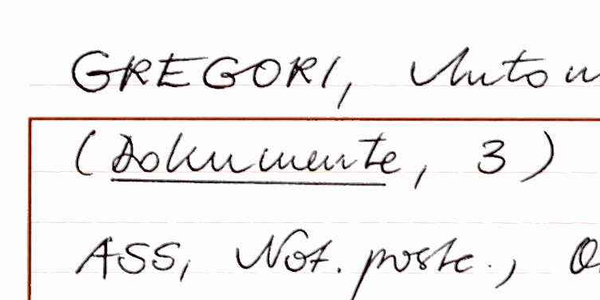 GREGORI, Anton
(Dokumente, 3)
ASS, Not. postc.,